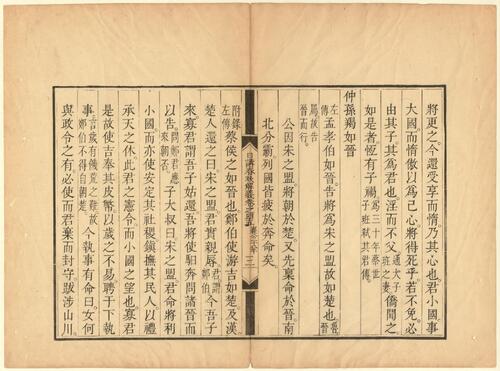 將更之今還受享而惰乃其心也君小國事
大國而惰傲以爲己心將得死乎若不免必
由其子其爲君也淫而不父通大子班之妻僑聞之
如是者恆有子禍爲三十年蔡世子班弒其君傳
仲孫羯如晉
左傳孟孝伯如晉告將爲宋之盟故如楚也魯晉
屬故告晉而行
公因宋之盟將朝於楚又先稟命於晉南
北分霸列國皆疲於奔命矣
日講春秋解義
三
附錄左傳蔡侯之如晉也鄭伯使游吉如楚及漢
楚人還之曰宋之盟君實親辱君謂鄭伯今吾子
來寡君謂吾子姑還吾將使馹奔問諸晉而
以告問鄭君應來朝否子大叔曰宋之盟君命將利
小國而亦使安定其社稷鎮撫其民人以禮
承天之休此君之憲令而小國之望也寡君
是故使吉奉其皮幣以歲之不易聘于下執
事言歲有饑荒之難故鄭伯不得自朝楚今執事有命曰女何
與政令之有必使而君棄而封守跋涉山川